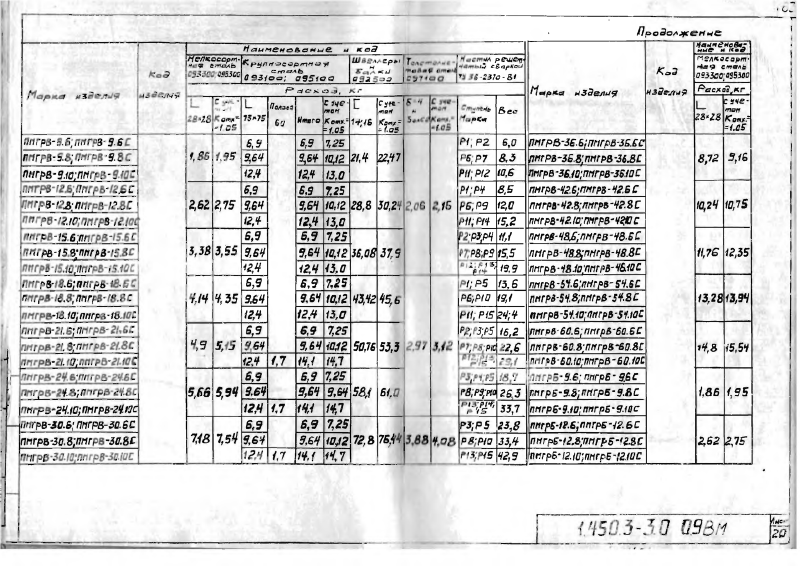 Продолжение
Марка изделия
Код изделия
Наименование и код
Мелкосорт-ная сталь 093300; 095300
Крупносортная сталь 093100; 095100
Швеллеры и балки 092500
Толстолис-товая сталь 097100
Настил решет-чатый сварной ТУ 36-2310-81
Марка изделия
Код изделия
Наименова-ние и код
Мелкосорт-ная сталь 093300; 095300
Расход, кг
Расход, кг
28×28
75×75
Полоса
Итого
С уче-том Котх.=1.05
14; 16
Ступень Марка
Вес
28×28
С уче-том Котх.=1.05
ПМГРВ-9.6; ПМГРВ-9.6С 6,9 6,9 7,25 Р1; Р2 6,0 ПМГРВ-36.6; ПМГРВ-36.6С
ПМГРВ-9.8; ПМГРВ-9.8С 1,86 1,95 9,64 9,64 10,12 21,4 22,47 Р6; Р7 8,3 ПМГРВ-36.8; ПМГРВ-36.8С 8,72 9,16
ПМГРВ-9.10; ПМГРВ-9.10С 12,4 12,4 13,0 Р11; Р12 10,6 ПМГРВ-36.10; ПМГРВ-36.10С
ПМГРВ-12.6; ПМГРВ-12.6С 6,9 6,9 7,25 Р1; Р4 8,5 ПМГРВ-42.6; ПМГРВ-42.6С
ПМГРВ-12.8; ПМГРВ-12.8С 2,62 2,75 9,64 9,64 10,12 28,8 30,24 2,06 2,16 Р6; Р9 12,0 ПМГРВ-42.8; ПМГРВ-42.8С 10,24 10,75
ПМГРВ-12.10; ПМГРВ-12.10С 12,4 12,4 13,0 Р11; Р14 15,2 ПМГРВ-42.10; ПМГРВ-42.10С
ПМГРВ-15.6; ПМГРВ-15.6С 6,9 6,9 7,25 Р2; Р3; Р4 11,1 ПМГРВ-48.6; ПМГРВ-48.6С
ПМГРВ-15.8; ПМГРВ-15.8С 3,38 3,55 9,64 9,64 10,12 36,08 37,9 Р7; Р8; Р9 15,5 ПМГРВ-48.8; ПМГРВ-48.8С 11,76 12,35
ПМГРВ-15.10; ПМГРВ-15.10С 12,4 12,4 13,0 Р12; Р13; Р14 19,9 ПМГРВ-48.10; ПМГРВ-48.10С
ПМГРВ-18.6; ПМГРВ-18.6С 6,9 6,9 7,25 Р1; Р5 13,6 ПМГРВ-54.6; ПМГРВ-54.6С
ПМГРВ-18.8; ПМГРВ-18.8С 4,14 4,35 9,64 9,64 10,12 43,42 45,6 Р6; Р10 19,1 ПМГРВ-54.8; ПМГРВ-54.8С 13,28 13,94
ПМГРВ-18.10; ПМГРВ-18.10С 12,4 12,4 13,0 Р11; Р15 24,4 ПМГРВ-54.10; ПМГРВ-54.10С
ПМГРВ-21.6; ПМГРВ-21.6С 6,9 6,9 7,25 Р2; Р3; Р5 16,2 ПМГРВ-60.6; ПМГРВ-60.6С
ПМГРВ-21.8; ПМГРВ-21.8С 4,9 5,15 9,64 9,64 10,12 50,76 53,3 2,97 3,12 Р7; Р8; Р10 22,6 ПМГРВ-60.8; ПМГРВ-60.8С 14,8 15,54
ПМГРВ-21.10; ПМГРВ-21.10С 12,4 1,7 14,1 14,7 ПМГРВ-60.10; ПМГРВ-60.10С
ПМГРВ-24.6; ПМГРВ-24.6С 6,9 6,9 7,25 Р3; Р4; Р5 ПМГРБ-9.6; ПМГРБ-9.6С
ПМГРВ-24.8; ПМГРВ-24.8С 5,66 5,94 9,64 9,64 9,64 58,1 61,0 Р8; Р9; Р10 26,3 ПМГРБ-9.8; ПМГРБ-9.8С 1,86 1,95
ПМГРВ-24.10; ПМГРВ-24.10С 12,4 1,7 14,1 14,7 Р13; Р14; Р15 33,7 ПМГРБ-9.10; ПМГРБ-9.10С
ПМГРВ-30.6; ПМГРВ-30.6С 6,9 6,9 7,25 Р3; Р5 23,8 ПМГРБ-12.6; ПМГРБ-12.6С
ПМГРВ-30.8; ПМГРВ-30.8С 7,18 7,54 9,64 9,64 10,12 72,8 76,44 3,88 4,08 Р8; Р10 33,4 ПМГРБ-12.8; ПМГРБ-12.8С 2,62 2,75
ПМГРВ-30.10; ПМГРВ-30.10С 12,4 1,7 14,1 14,7 Р13; Р15 42,9 ПМГРБ-12.10; ПМГРБ-12.10С
1.450.3-3.0 09ВМ
Лист
20